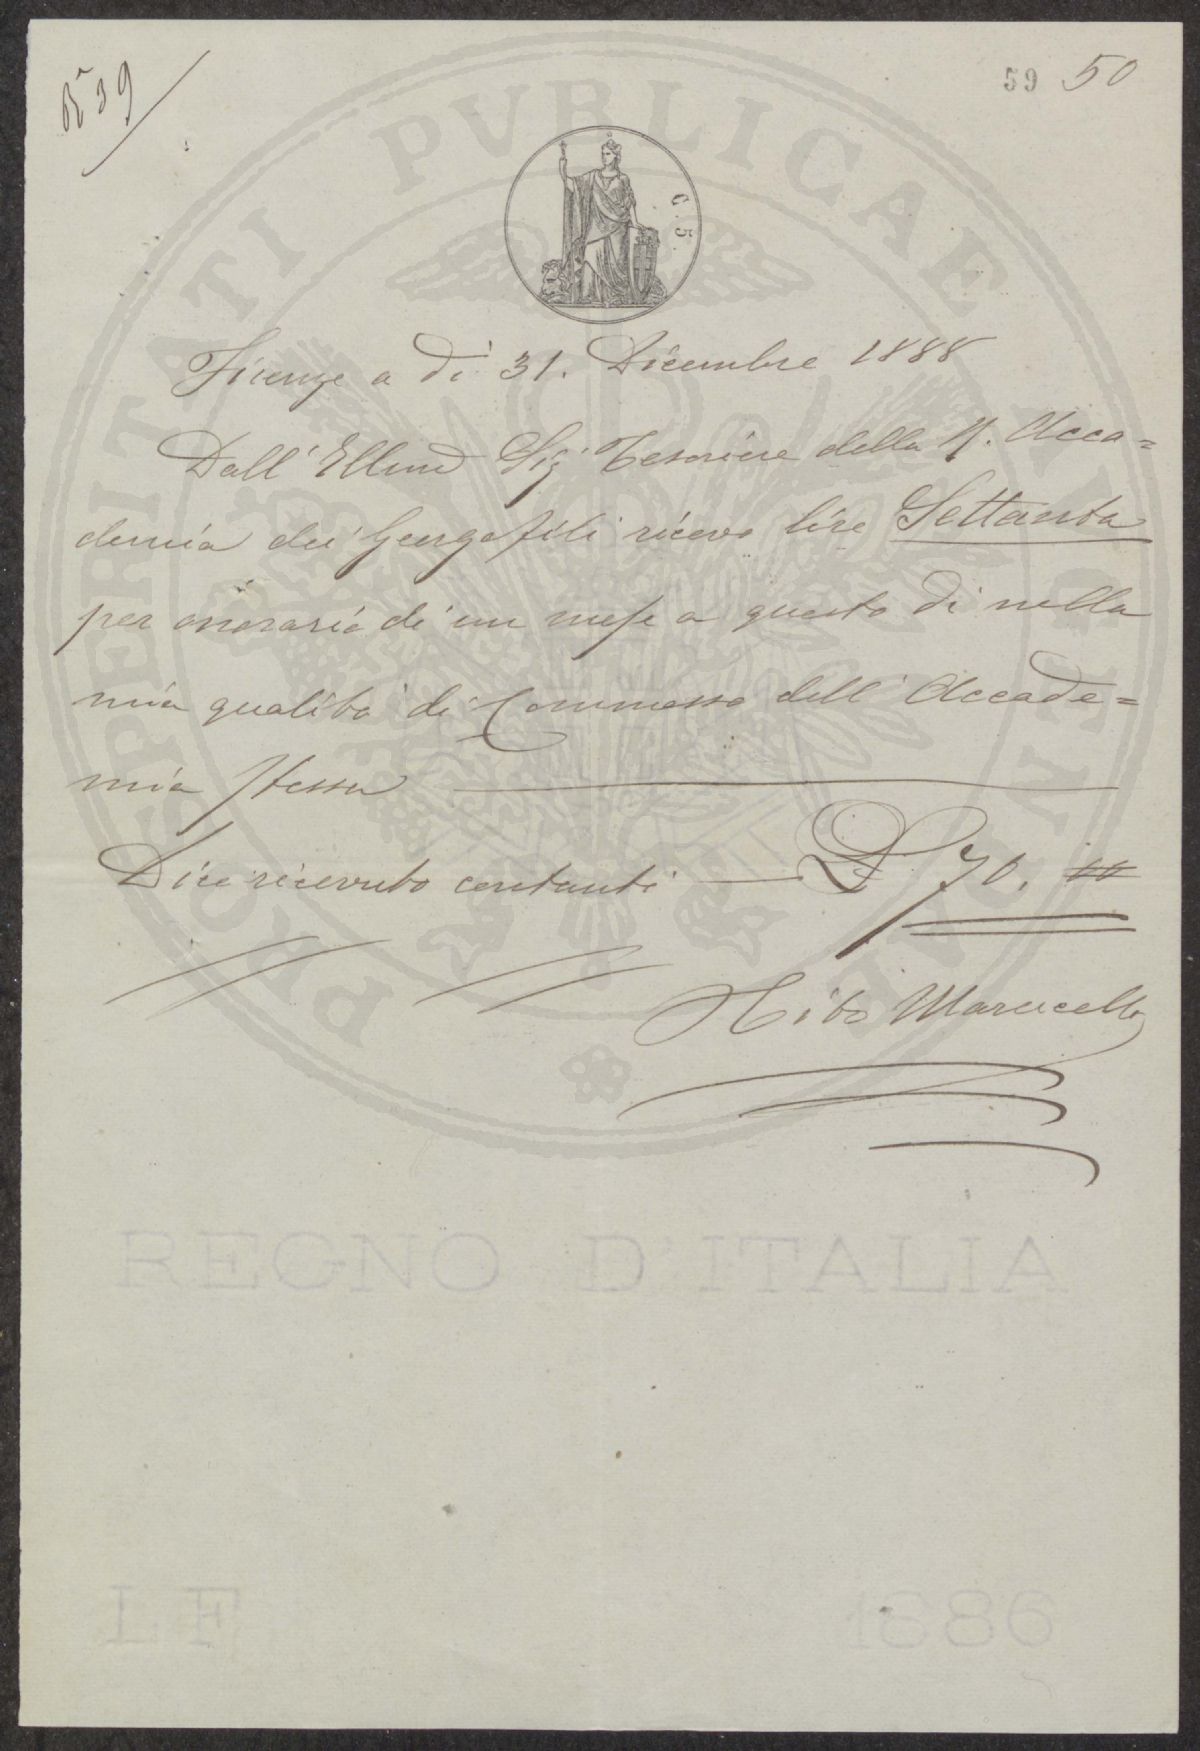 N° 39
59 50
C. 5
PROSPERITATI PUBLICAE
Firenze a dì 31. Dicembre 1888
Dall' Ill.mo Sig. Tesoriere della R. Acca=
demia dei Georgofili ricevo lire Settanta
per onorario di un mese a questo dì nella
mia qualità di Commesso dell' Accade=
mia stessa
Dico ricevuto contanti L 70. 00
Marucelli
REGNO D'ITALIA
LF 1886